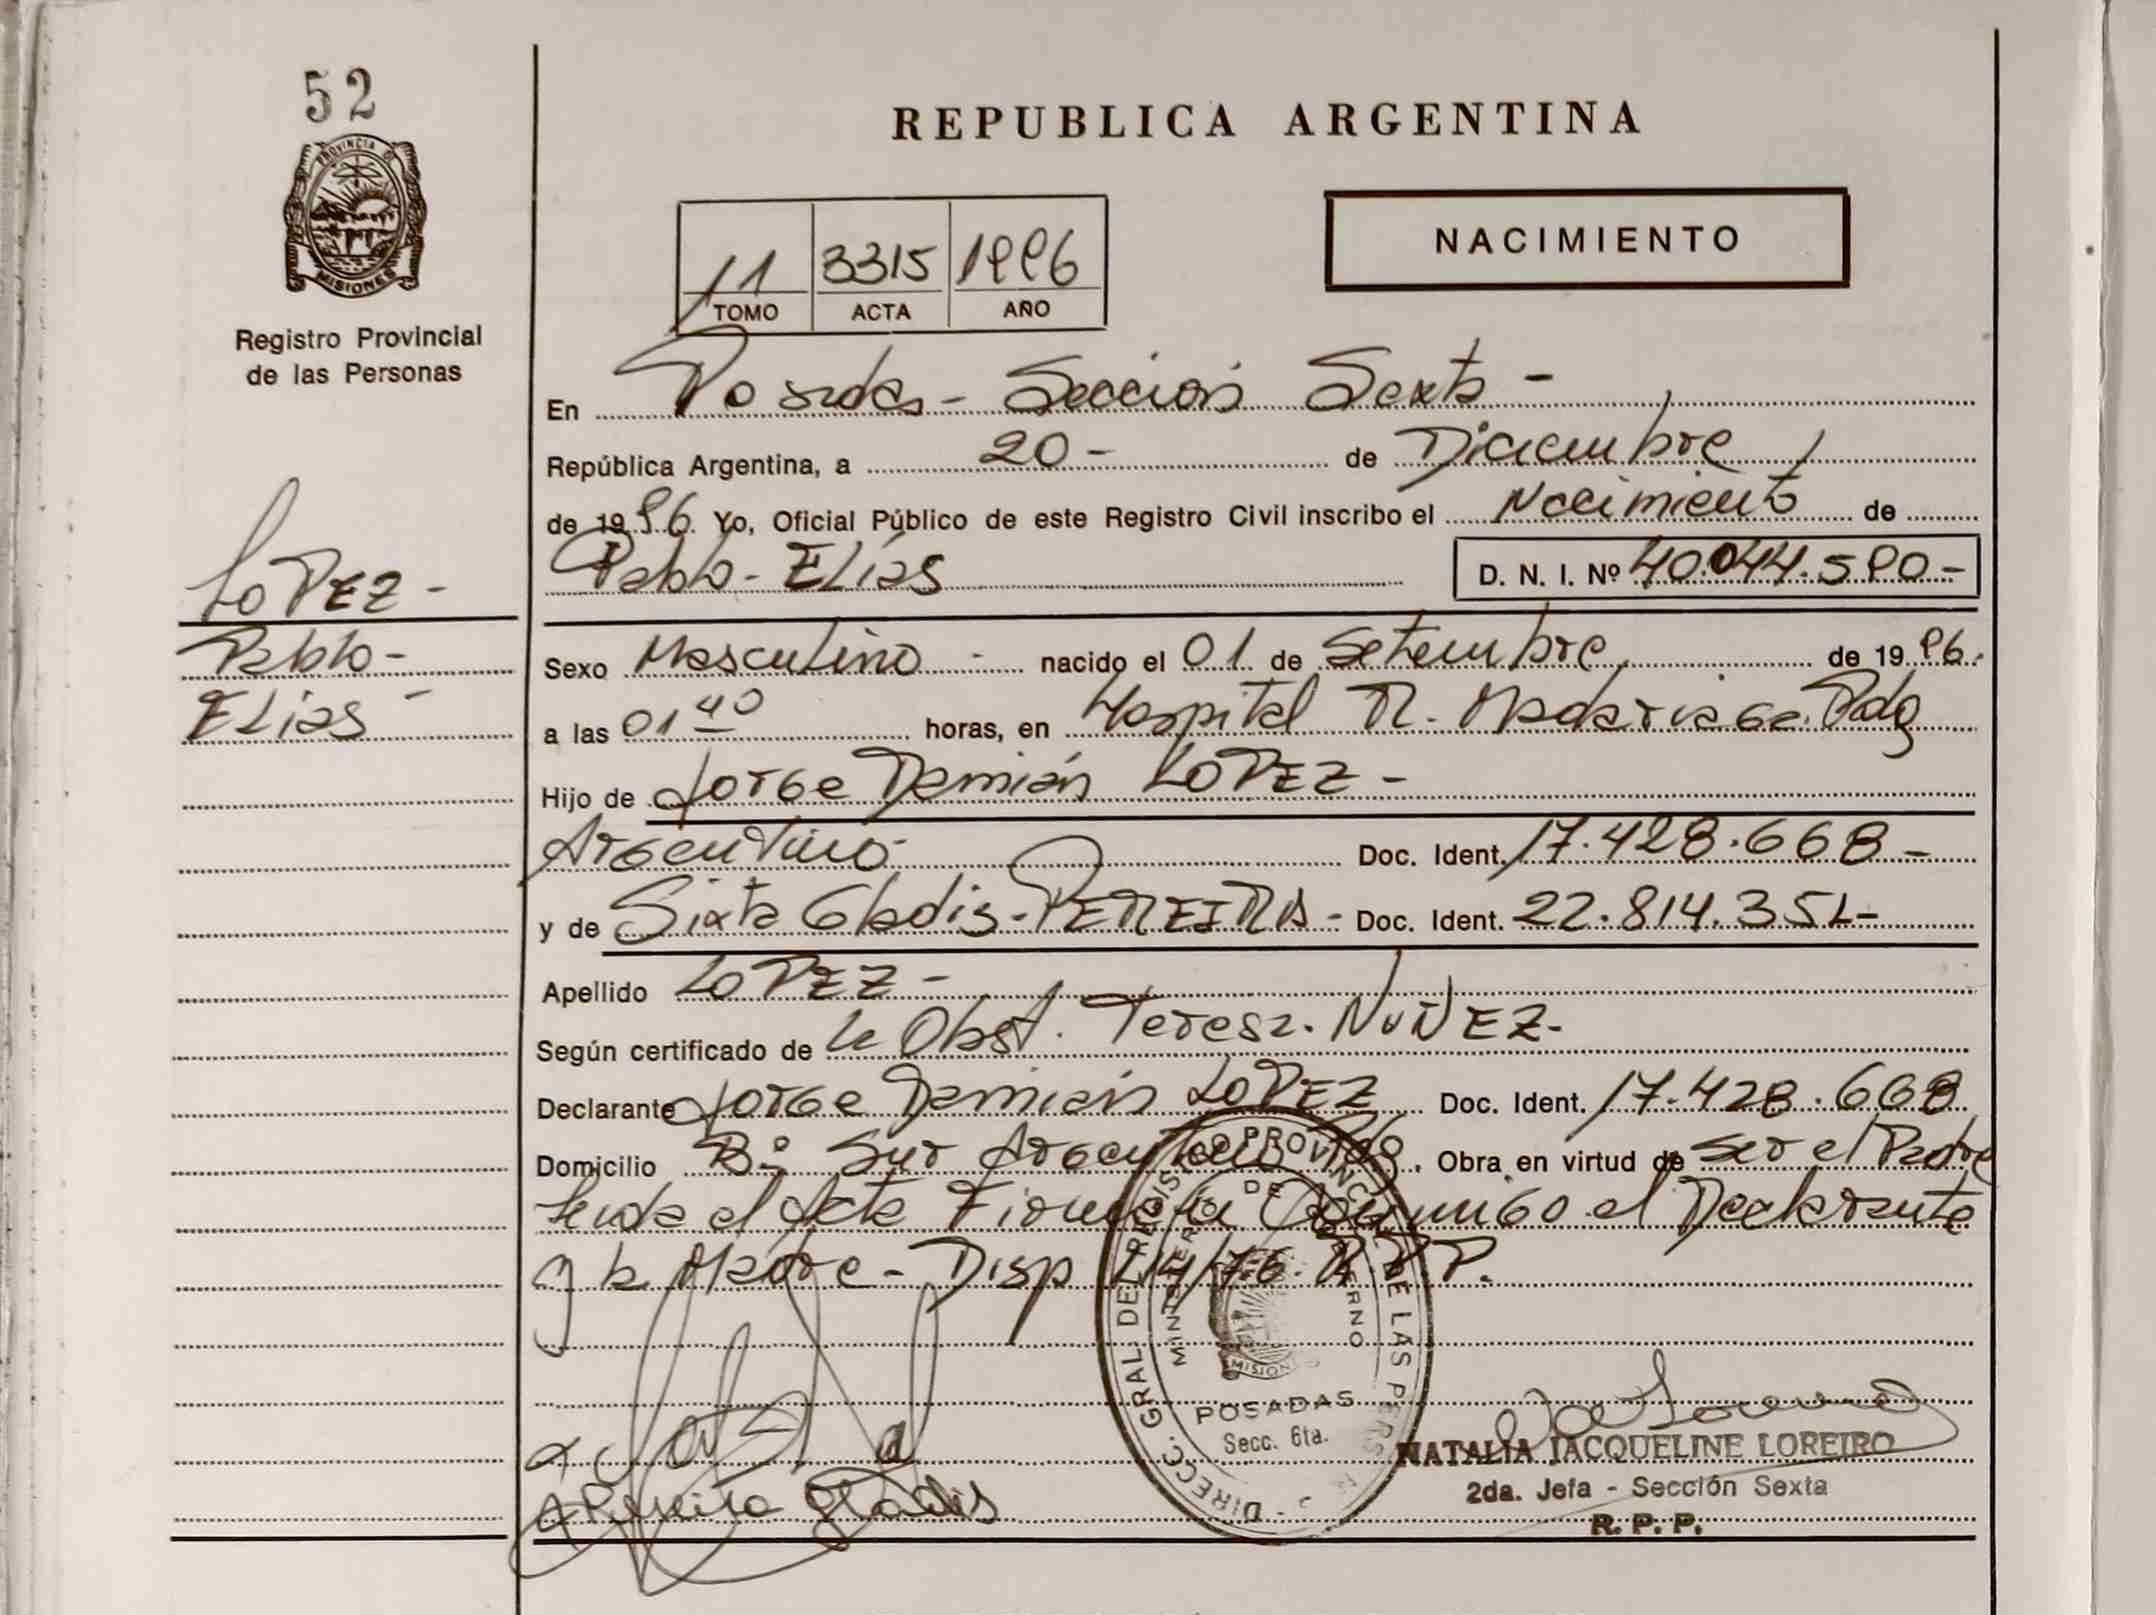 52
PROVINCIA DE
MISIONES
Registro Provincial
de las Personas
LOPEZ -
Pablo -
Elías -
REPUBLICA ARGENTINA
NACIMIENTO
11 3315 1996
TOMO ACTA AÑO
En Posadas - Sección Sexta -
República Argentina, a 20 - de Diciembre
de 1996. Yo, Oficial Público de este Registro Civil inscribo el Nacimiento de
Pablo - Elías D. N. I. Nº 40.044.590 -
Sexo Masculino - nacido el 01 de Setiembre de 1996.
a las 01 40 horas, en Hospital R. Madariaga. Pdas
Hijo de Jorge Damián LOPEZ -
Argentino - Doc. Ident. 17.428.668 -
y de Sixta Gladis - PEREIRA - Doc. Ident. 22.814.351 -
Apellido LOPEZ -
Según certificado de la Obst. Teresa. NUÑEZ -
Declarante Jorge Damián LOPEZ Doc. Ident. 17.428.668
Domicilio Bº Sur Argentino Pdas. Obra en virtud de ser el Padre
Leída el Acta Firman Conmigo el Declarante
y la Madre - Disp 14/76. R.P.P.
DIRECC. GRAL DEL REGISTRO PROVINCIAL DE LAS PERS
MINISTERIO DE GOBIERNO
MISIONES
POSADAS
Secc. 6ta.
Pereira Gladis
NATALIA JACQUELINE LOREIRO
2da. Jefa - Sección Sexta
R. P. P.